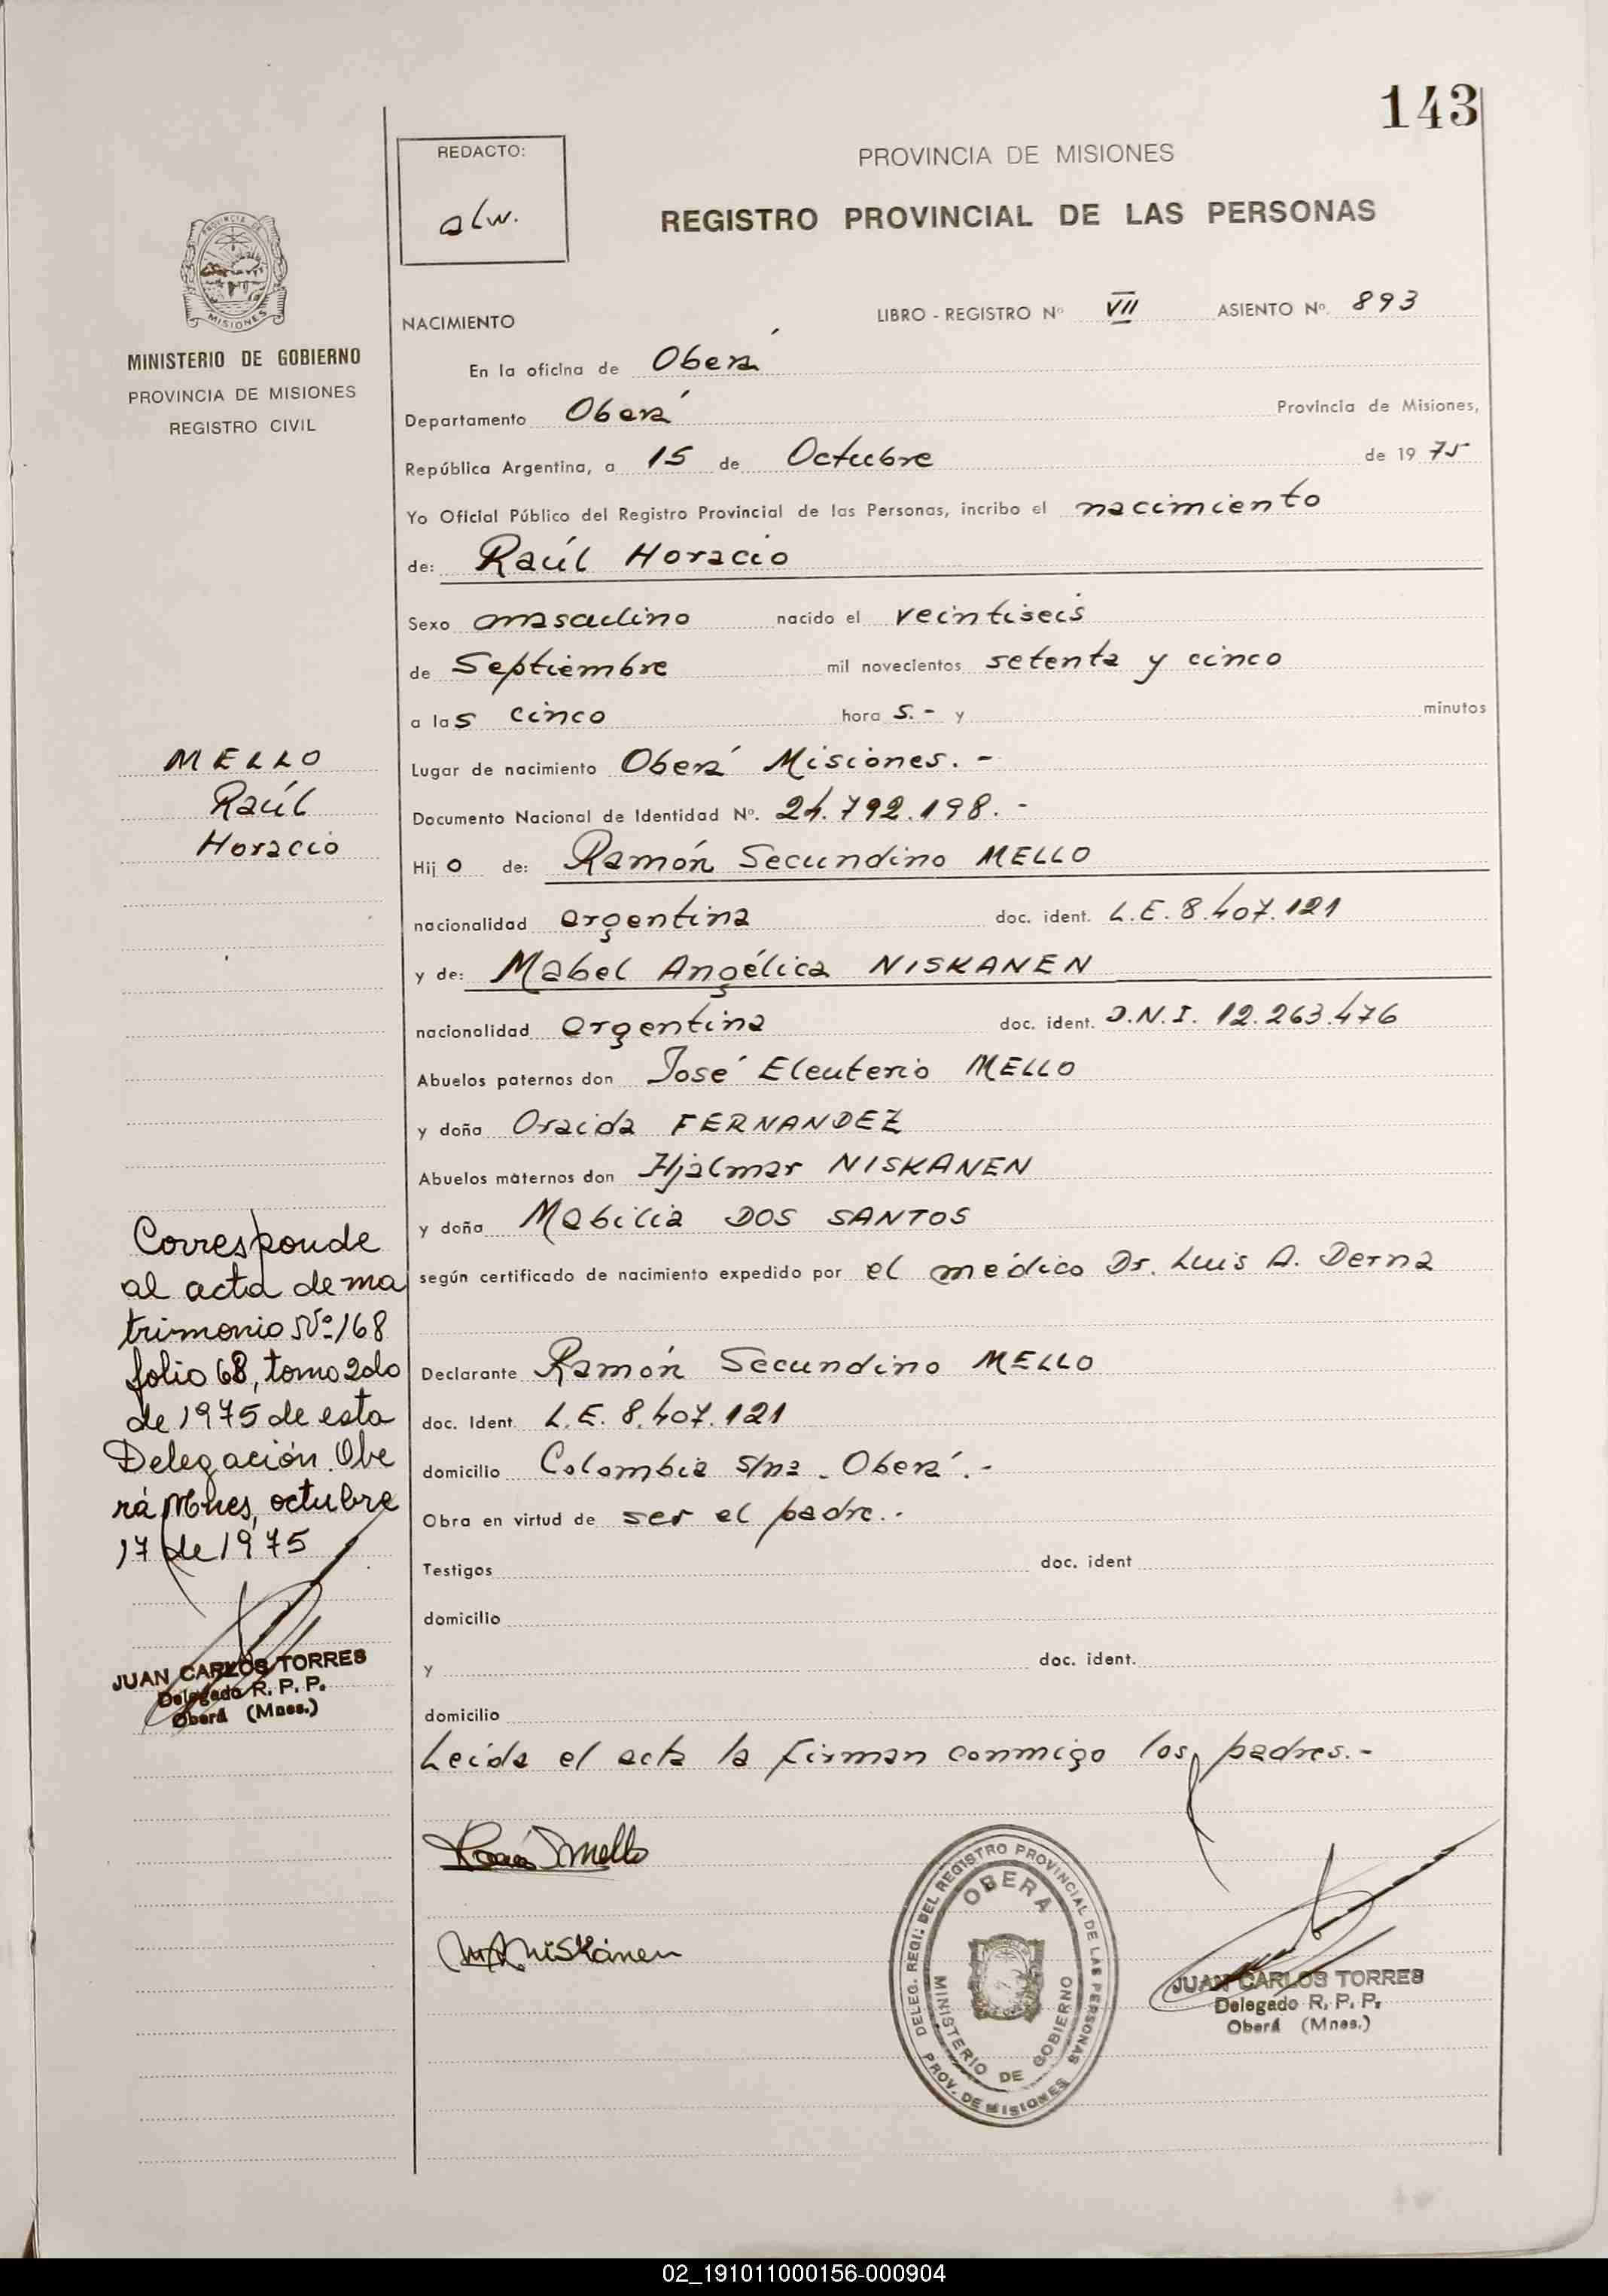 143
REDACTO:
alw.
PROVINCIA DE MISIONES
REGISTRO PROVINCIAL DE LAS PERSONAS
PROVINCIA DE
MISIONES
MINISTERIO DE GOBIERNO
PROVINCIA DE MISIONES
REGISTRO CIVIL
NACIMIENTO LIBRO - REGISTRO Nº VII ASIENTO Nº 893
En la oficina de Oberá
Departamento Oberá Provincia de Misiones,
República Argentina, a 15 de Octubre de 1975
Yo Oficial Público del Registro Provincial de las Personas, incribo el nacimiento
de: Raúl Horacio
Sexo masculino nacido el veintiseis
de Septiembre mil novecientos setenta y cinco
a las cinco hora s.- y minutos
Lugar de nacimiento Oberá Misiones. -
Documento Nacional de Identidad Nº. 24.792.198. -
Hijo de: Ramón Secundino MELLO
nacionalidad argentina doc. ident. L.E. 8.407.121
y de: Mabel Angélica NISKANEN
nacionalidad argentina doc. ident. D.N.I. 12.263.476
Abuelos paternos don José Eleuterio MELLO
y doña Oraida FERNANDEZ
Abuelos maternos don Hjalmar NISKANEN
y doña Mabilia DOS SANTOS
según certificado de nacimiento expedido por el médico Dr. Luis A. Derna
Declarante Ramón Secundino MELLO
doc. Ident. L.E. 8.407.121
domicilio Colombia s/na - Oberá. -
Obra en virtud de ser el padre. -
Testigos doc. ident
domicilio
y doc. ident.
domicilio
Leida el acta la firman conmigo los padres. -
MELLO
Raúl
Horacio
Corresponde
al acta de ma
trimonio Nº 168
folio 68, tomo 2do
de 1975 de esta
Delegación. Obe
rá Mnes, octubre
17 de 1975
JUAN CARLOS TORRES
Delegado R. P. P.
Oberá (Mnes.)
Mello
M A Niskanen
DELEG. REGI: DEL REGISTRO PROVINCIAL DE LAS PERSONAS
OBERA
MINISTERIO DE GOBIERNO
PROV. DE MISIONES
JUAN CARLOS TORRES
Delegado R. P. P.
Oberá (Mnes.)
02_191011000156-000904